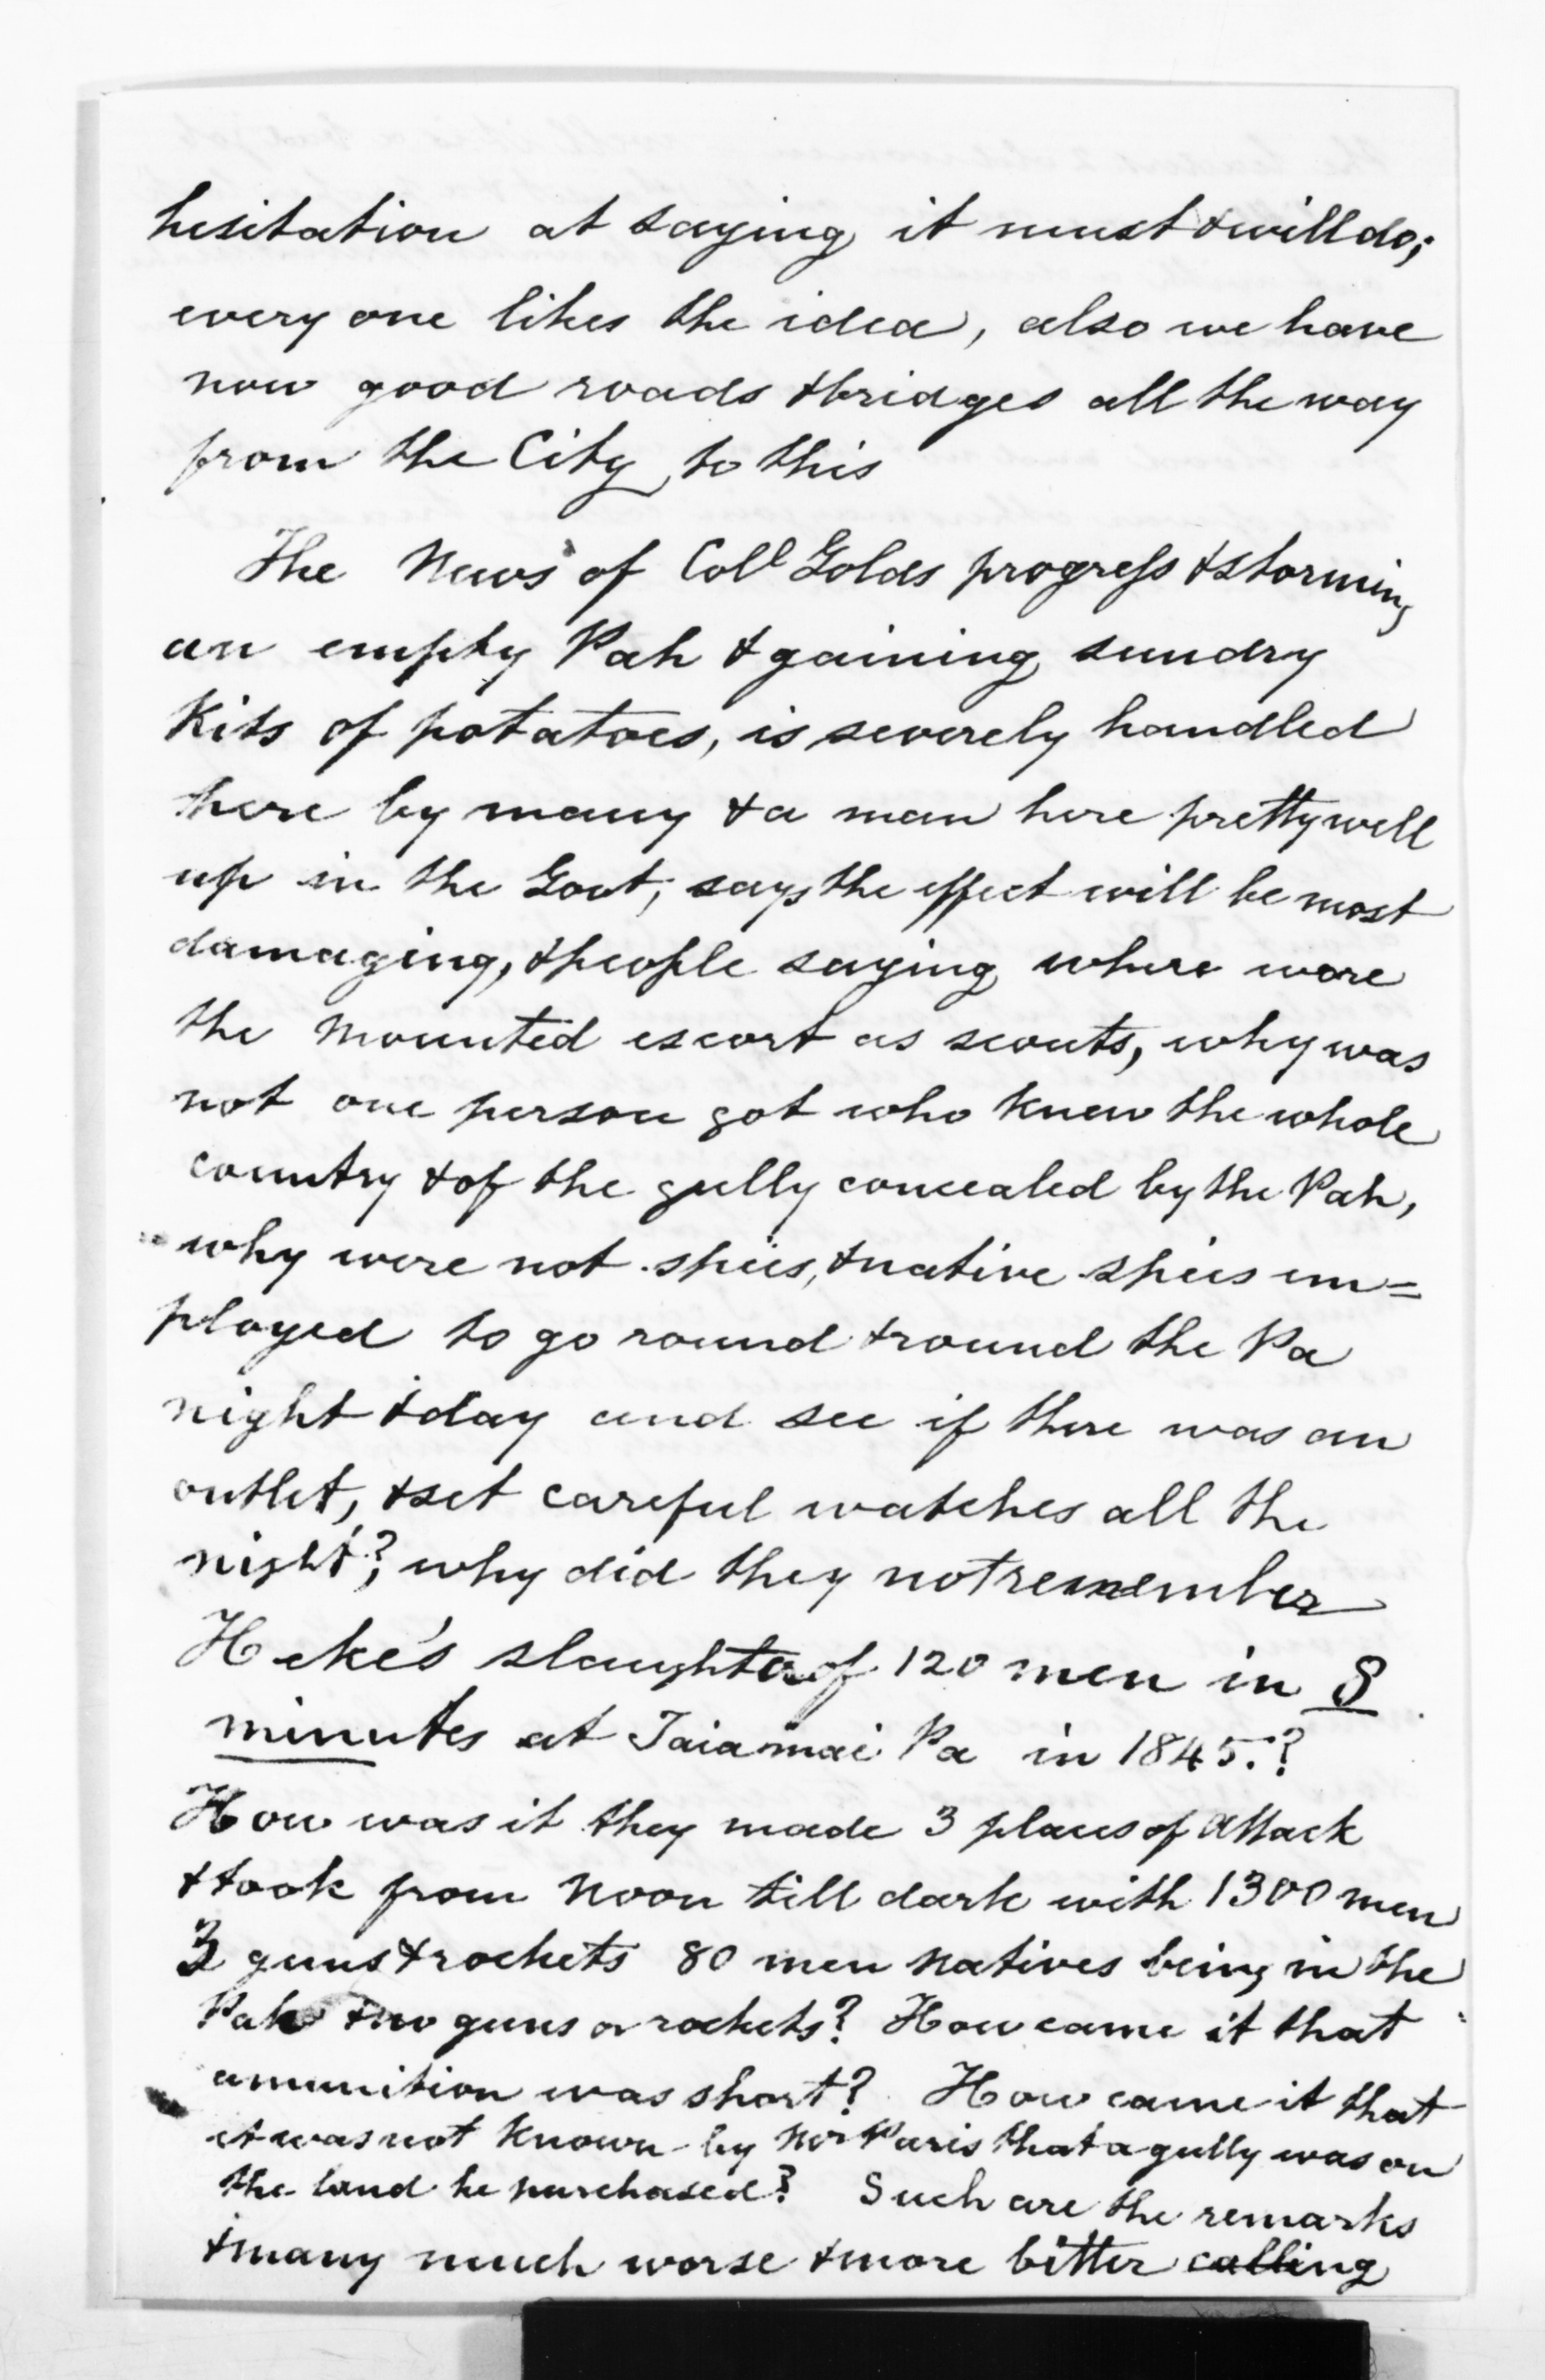 hesitation at saying it must & will do;
every one likes the idea, also we have
now good roads & bridges all the way
from the City to this
The News of Coll Golds progress & storming
an empty Pah & gaining sundry
Kits of potatoes, is severely handled
here by many & a man here pretty well
up in the Govt, says the effect will be most
damaging, & people saying where were
the mounted escort as scouts, why was
not one person got who knew the whole
country & of the gully concealed by the Pah,
why were not spies, & native spies em=
ployed to go round & round the Pa
night & day and see if there was an
outlet, & set careful watches all the
night? why did they not remember
Heke's slaughter of 120 men in 8
minutes at Taiamai Pa in 1845.?
How was it they made 3 places of attack
& took from Noon till dark with 1300 men
3 guns & rockets 80 men natives being in the
Pah & no guns or rockets? How came it that
amunition was short? How came it that
it was not known by Mr Paris that a gully was on
the land he purchased? Such are the remarks
& many much worse & more bitter calling